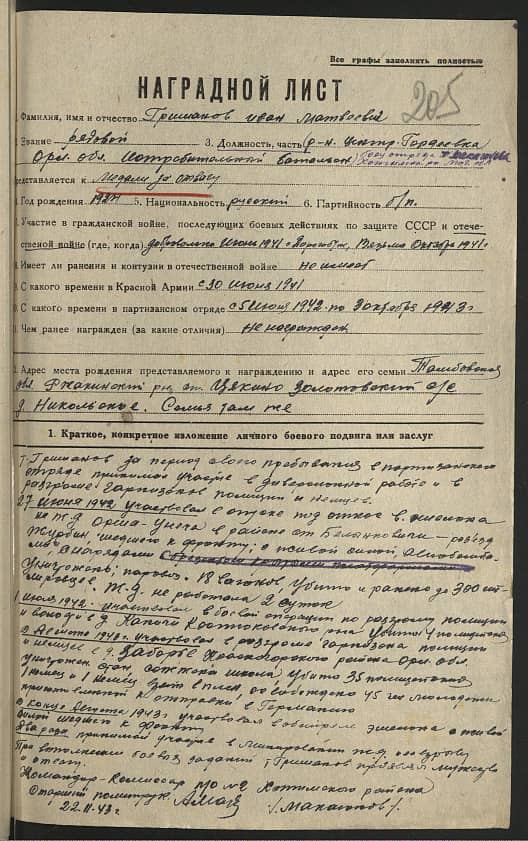 Все графы заполнять полностью
НАГРАДНОЙ ЛИСТ
205
Фамилия, имя и отчество Гришанов иван Матвеевич
Звание рядовой 3. Должность, часть р-н. Центр. Гордеевка
Орл. обл. Истребительный батальон
представляется к Медали за отвагу
Год рождения 5. Национальность русский 6. Партийность б/п.
Участие в гражданской войне, последующих боевых действиях по защите СССР и отече-
ственой войне (где, когда) добровольно Июнь 1941 г. Вязьма Октября 1941 г
Имеет ли ранения и контузии в отечественной войне не имеет
С какого времени в Красной Армии с 30 июня 1941
С какого времени в партизанском отряде с 5 июня 1942 по 3 октября 1943 г
Чем ранее награжден (за какие отличия) Не награжден
Адрес места рождения представляемого к награждению и адрес его семьи Тамбовская
обл. р-н ст. с/с
д. Никольское. Семья там же
1. Краткое, конкретное изложение личного боевого подвига или заслуг
т. Гришанов за период своего пребывания в партизанском
отряде принимал участие в диверсионной работе и в
разгроме гарнизонов полиции и немцев.
27 июня 1942 участвовал в спуске под откос в. эшелона
на ж.д Орша-Унеча в районе ст. Белынковичи - разъезд
Журбин, шедшего к фронту, с живой силой, автобомба-
ми, снарядами
Уничтожен: паровоз. 18 вагонов убито и ранено до 300 гит-
леровцев. Ж.д. не работала 2 суток
июля 1942 участвовал в боевой операции по разгрому полиции
в д. р-на убиты полицейских
В Августе 1943 г. участвовал в разгроме гарнизона полиции
и немцев в д. Заборье Красногорского района Орл. обл.
уничтожен гарн, сожжена школа убито 35 полицейских
1 немец и 1 немец взят в плен, освобождено 45 чел молодежи
к отправки в Германию
В конце Августа 1943 г участвовал в обстреле эшелона с живой
силой шедшего к фронту
Два раза принимал участие в минировании ж.д.
При выполнении боевых заданий т Гришанов проявлял мужество
и отвагу.
Командир-Комиссар П/О №2 Хотимского района
Старший политрук /Макаонов/.
22.11.43 г